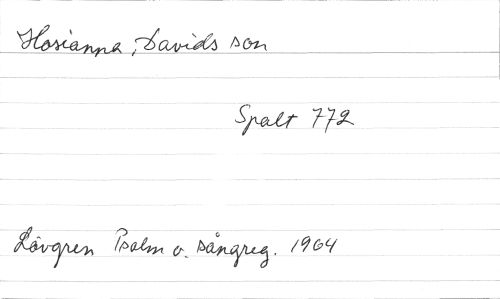 Hosianna, Davids son
Spalt 772
Lövgren Psalm o. sångreg. 1964